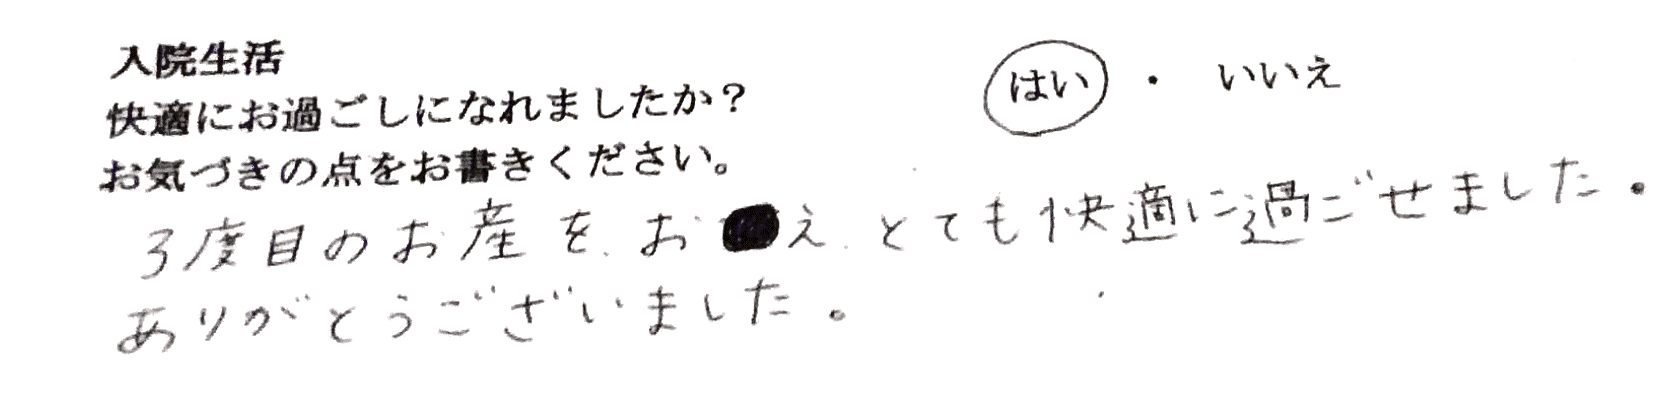 入院生活
快適にお過ごしになれましたか？ はい ・ いいえ
お気づきの点をお書きください。
3度目のお産を、お え、とても快適に過ごせました。
ありがとうございました。